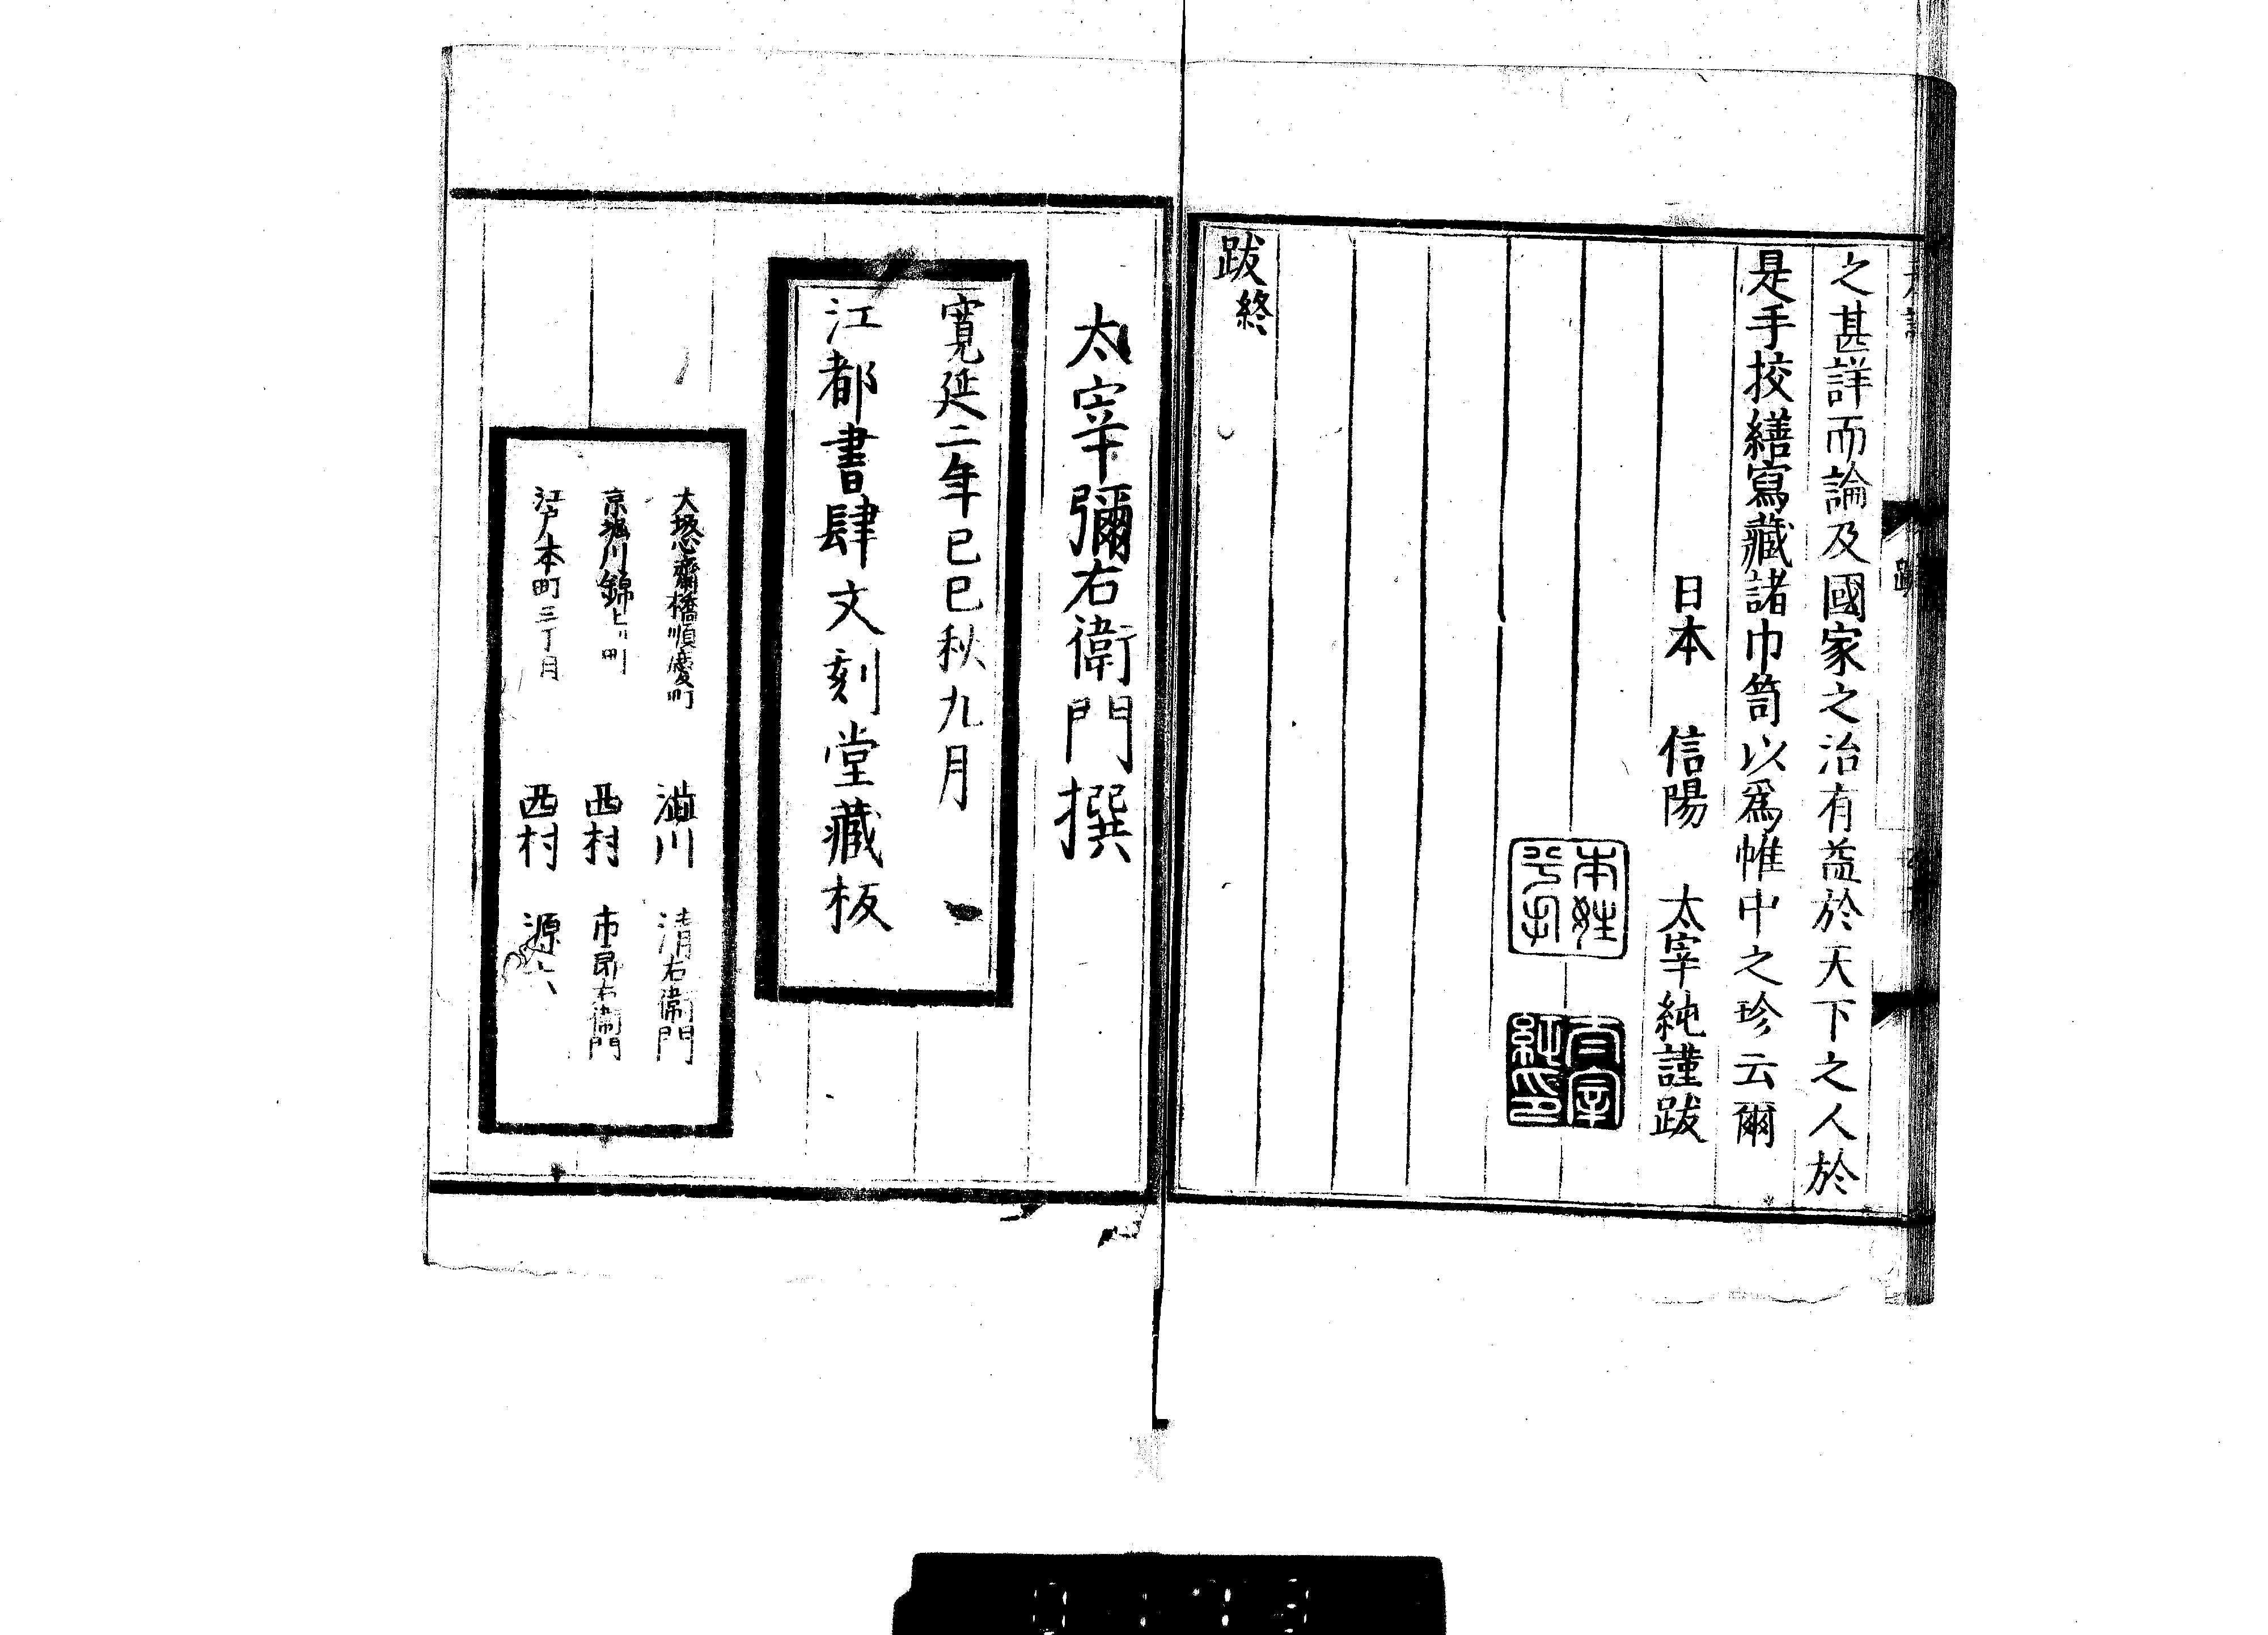 之甚詳而論及國家之治有益於天下之人於
是手挍繕寫藏諸巾笥以爲帷中之珍云爾
日本 信陽 太宰純謹跋
本姓
平手
太宰
純印
跋終
太宰彌右衛門撰
寬延二年己巳秋九月
江都書肆文刻堂藏板
大坂心齋橋順慶町 澁川 清右衛門
京堀川錦上ル町 西村 市郎右衛門
江戸本町三丁目 西村 源六